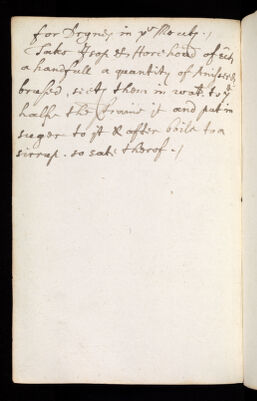 for Drynes in yͤ Mouth ./
Take Isop & Horehoud of ech
a handfull a quantity of Anisseeds
brused, seeth them in watͬ to yͤ
halfe the straine it and put in
suger to it & after boile to a
sirrup . so eate therof ./